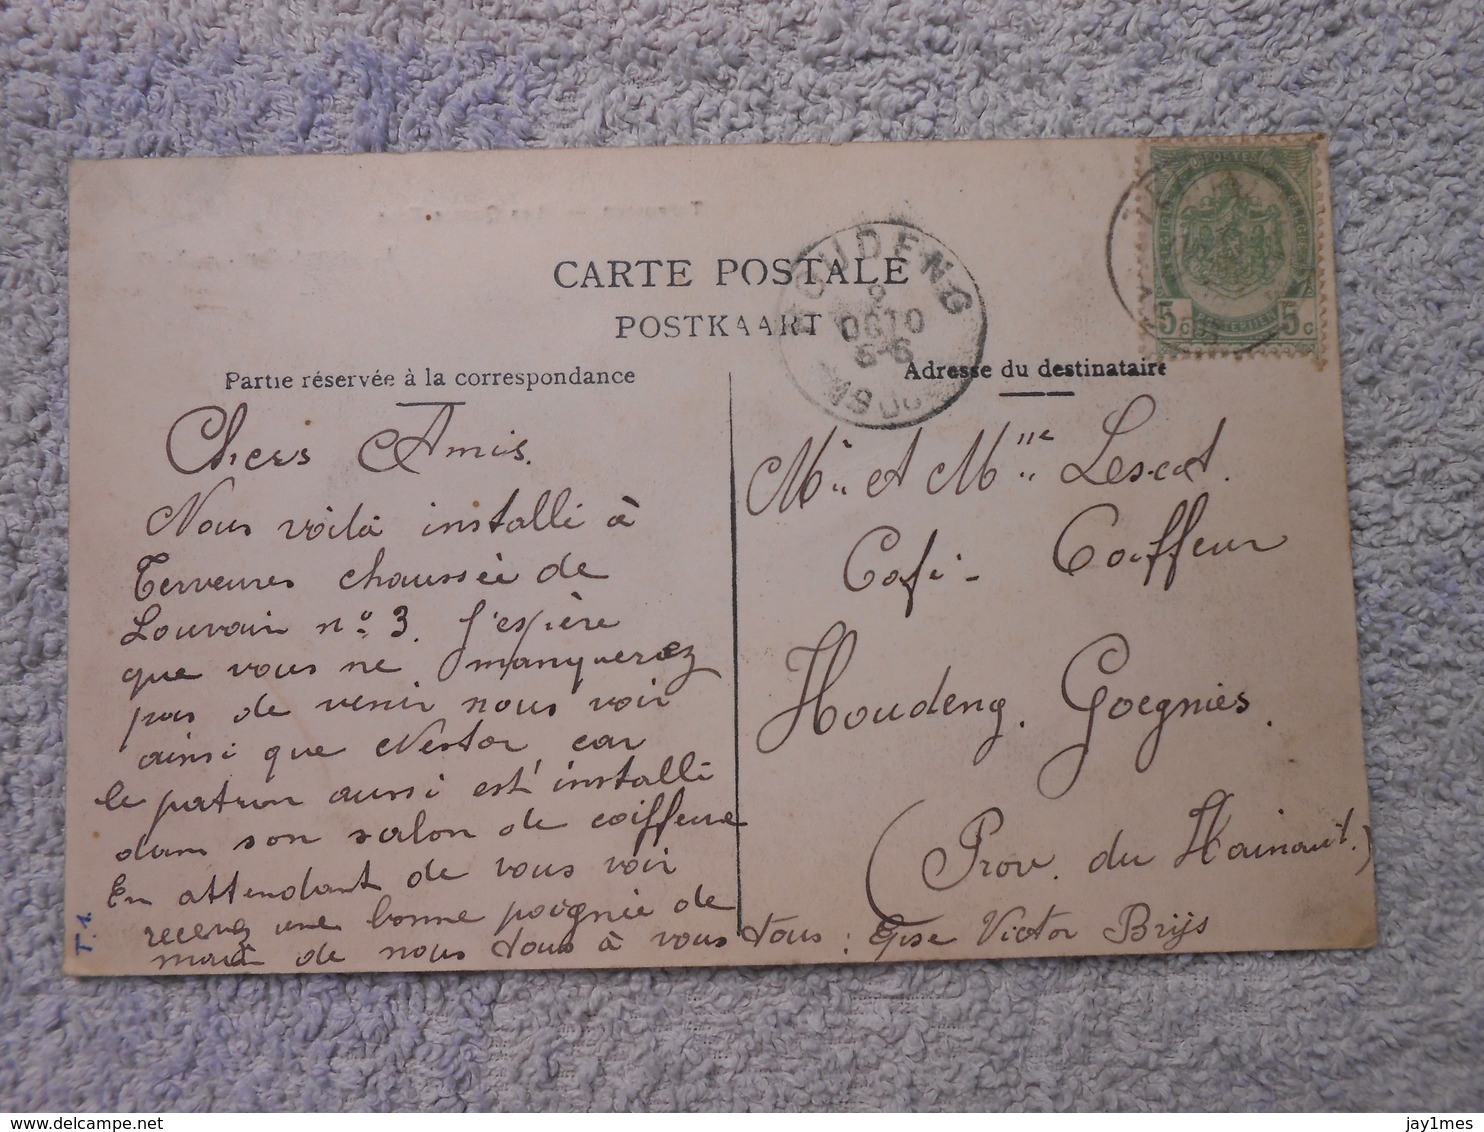 CARTE POSTALE
POSTKAART
Partie réservée à la correspondance
Chers Amis.
Nous voilà installé à
Terveuren chaussée de
Louvain nº 3. J'espère
que vous ne manquerez
pas de venir nous voir
ainsi que Nestor car
le patron aussi est installé
dans son salon de coiffeur
En attendant de vous voir
recevez une bonne poignée de
main de nous tous à vous tous : Gise Victor Brijs
T.1.
HOUDENG
9
OCTO
6-6
Adresse du destinataire
POSTES
5 c
5 c
Mr et Mme Lescot.
Café - Coiffeur
Houdeng. Goegnies.
(Prov. du Hainaut.)
jay1mes